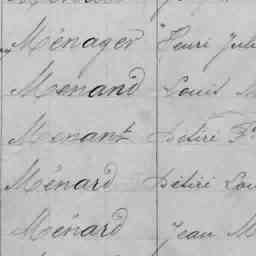 Ménager Henri Juli
Menand Louis M
Menant Désiré F
Ménard Désiré Lou
Ménard Jean M